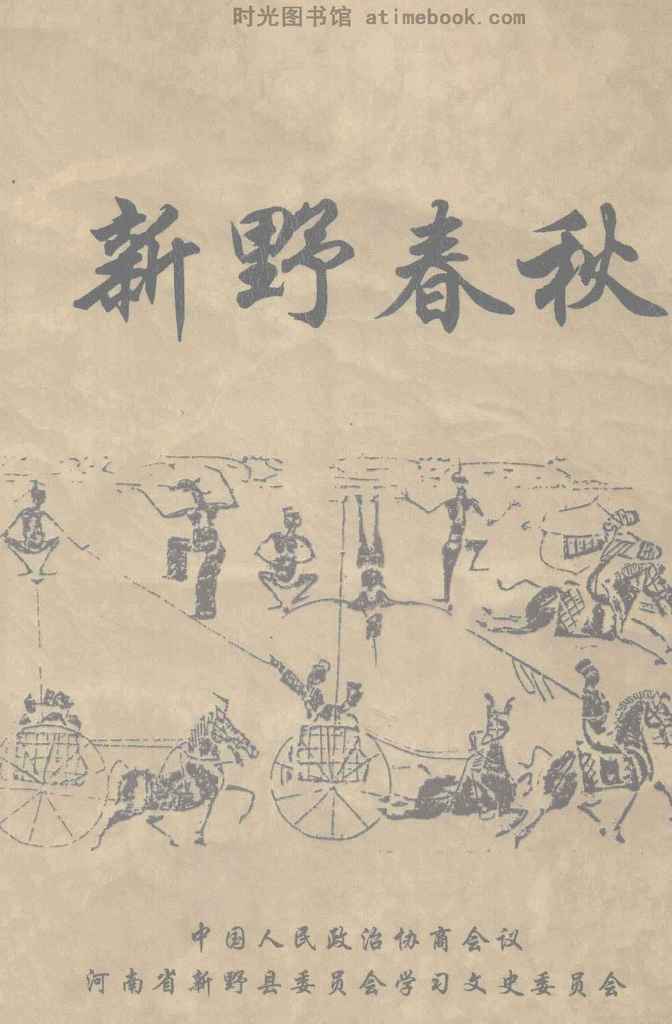 时光图书馆 atimebook.com
新野春秋
中国人民政治协商会议
河南省新野县委员会学习文史委员会